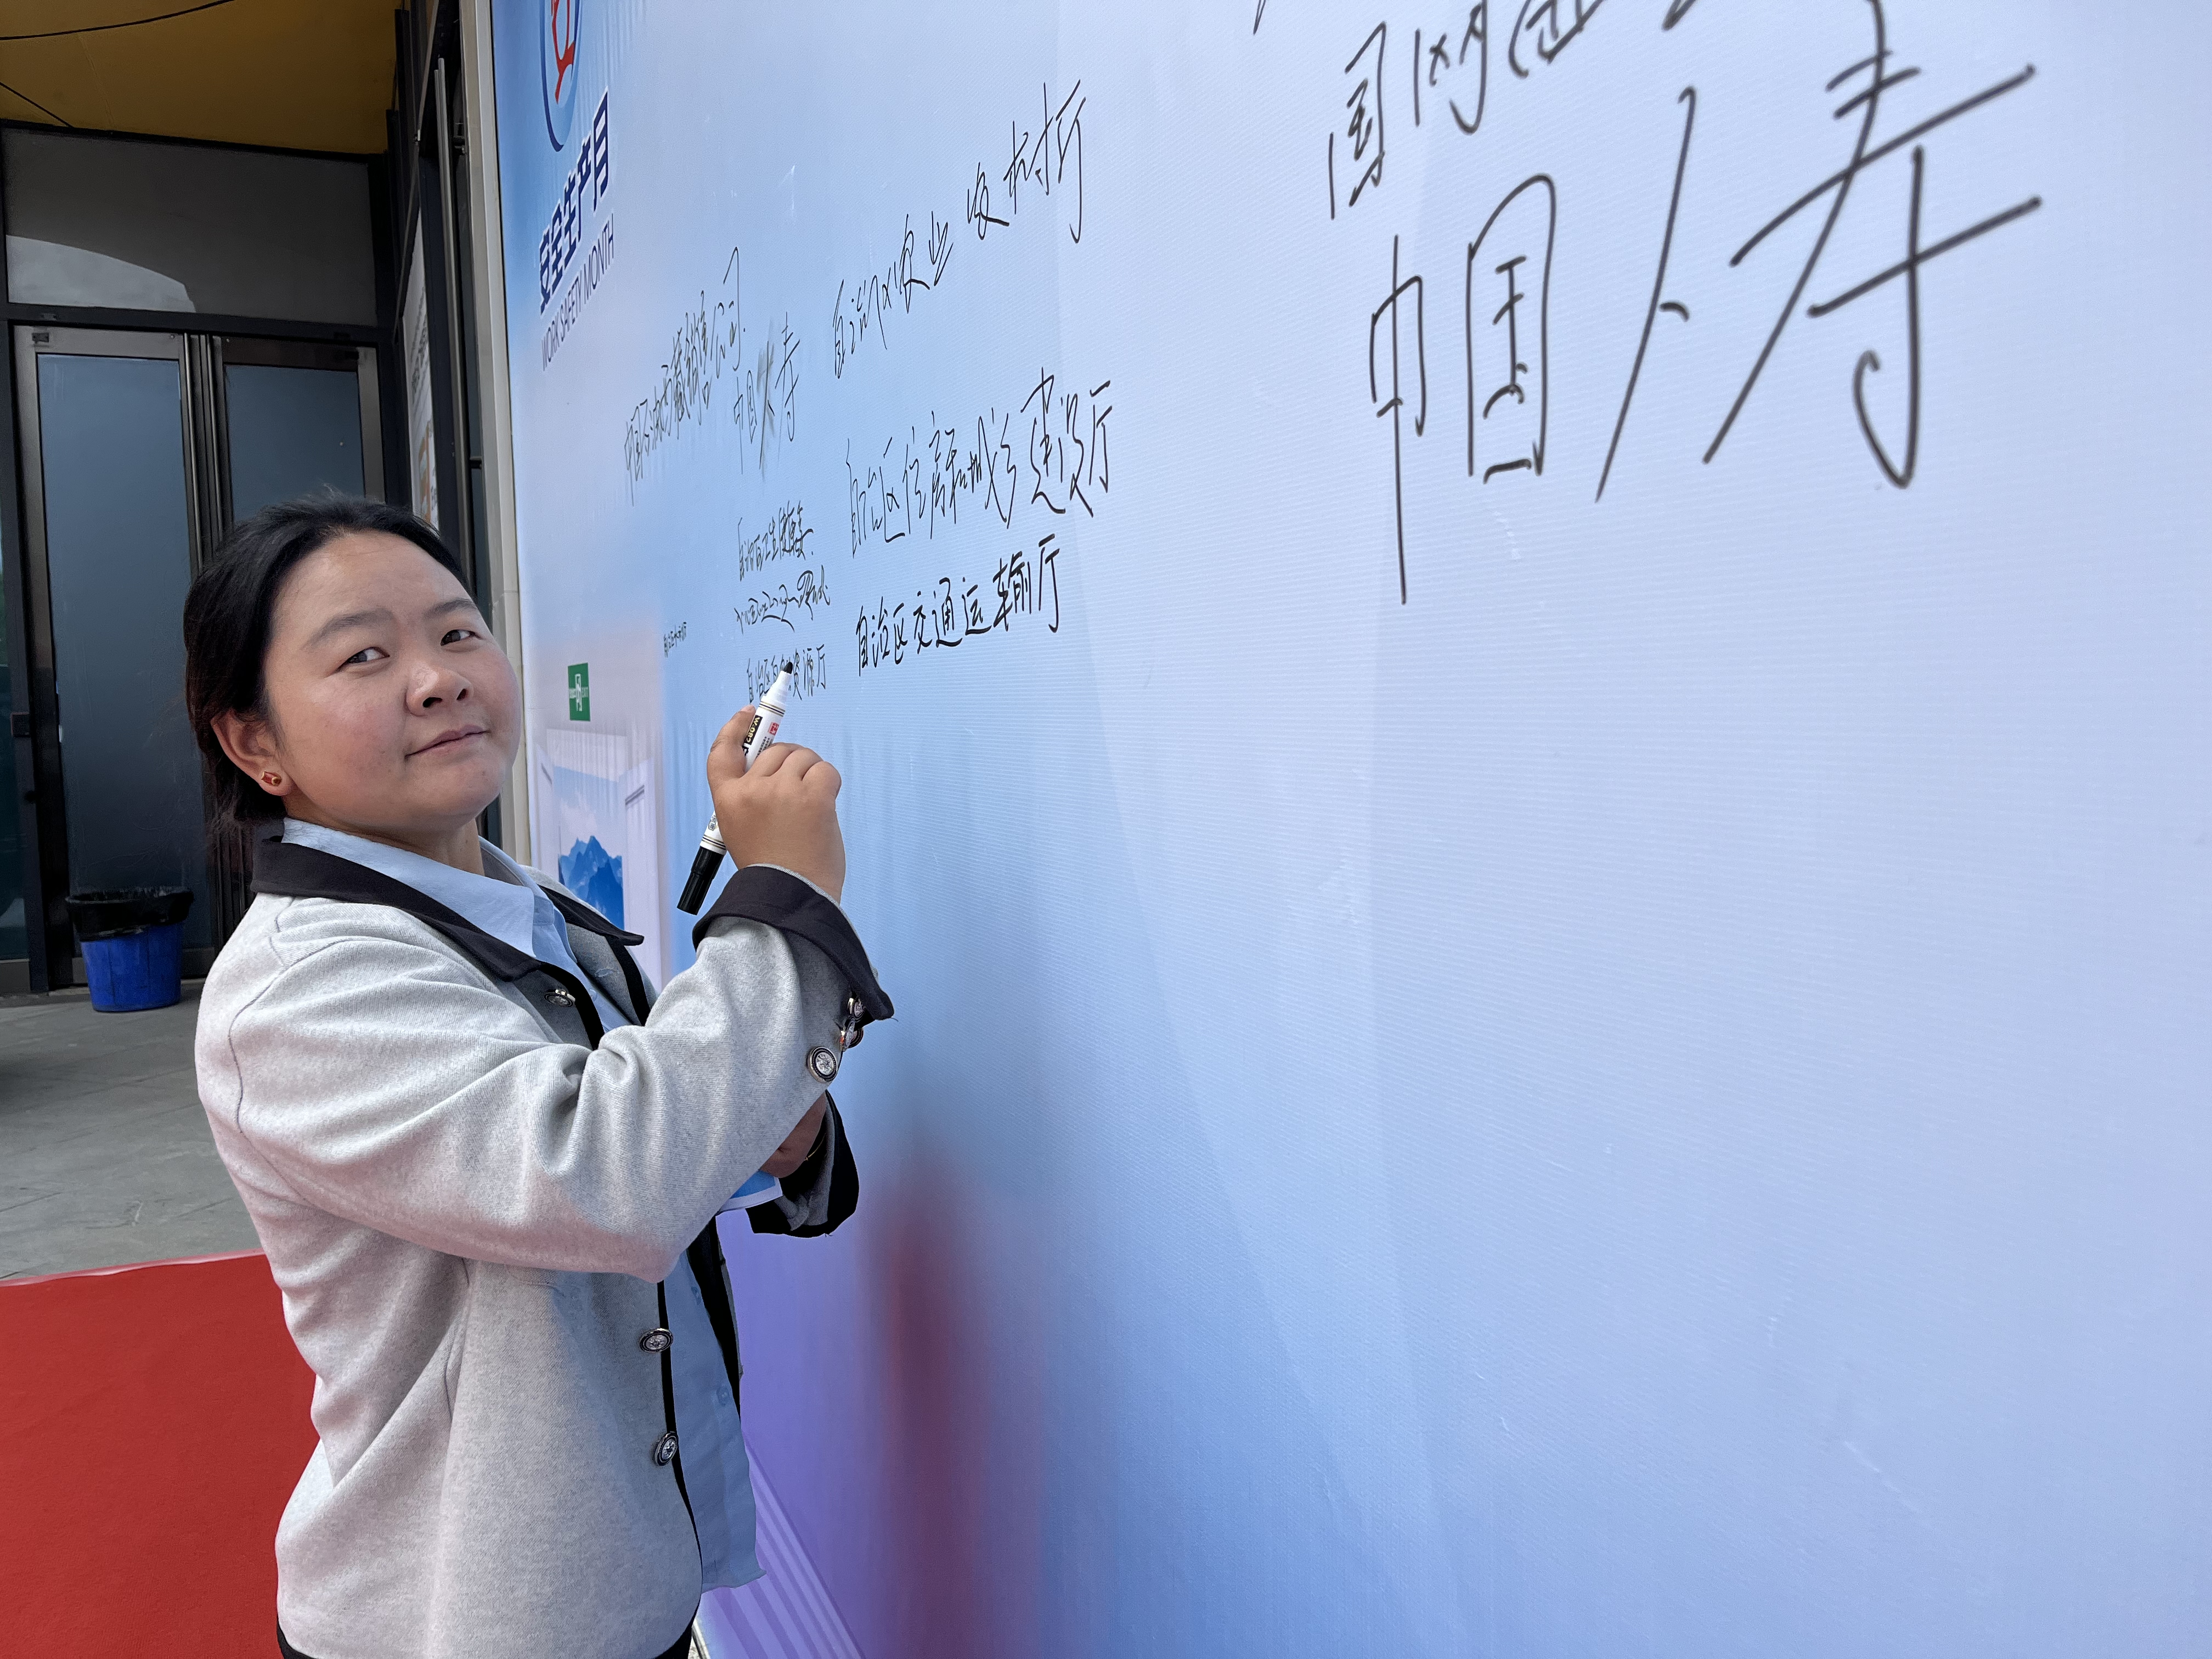 安全生产月
WORK SAFETY MONTH
中国石油西藏销售公司
中国人寿
自治区农业农村厅
自治区住房和城乡建设厅
自治区卫生健康委
自治区交通运输厅
自治区自然资源厅
国网
中国人寿